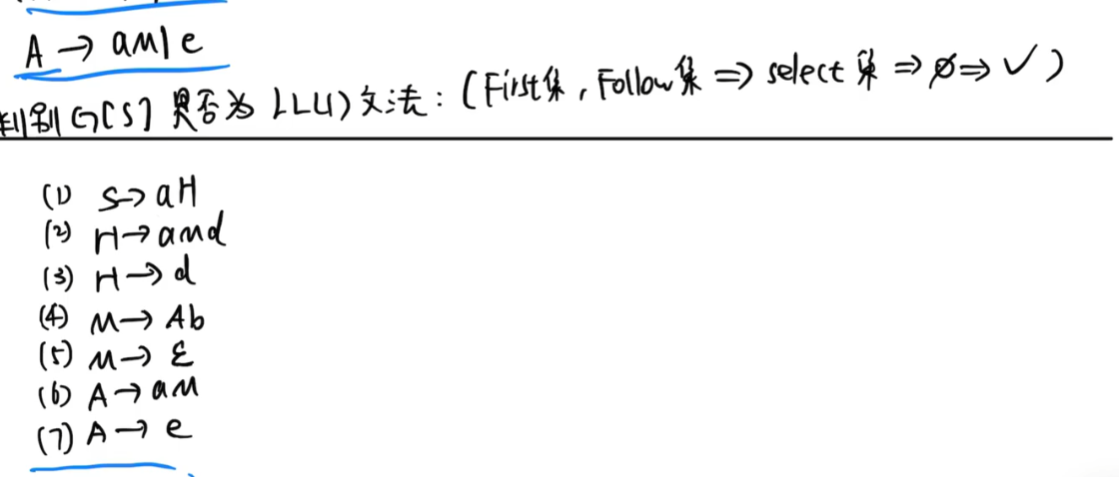 A → aM|e
判别G[S]是否为LL(1)文法:(First集,Follow集 ⇒ select集 ⇒ ∅ ⇒ ✓)
(1) S → aH
(2) H → aMd
(3) H → d
(4) M → Ab
(5) M → ε
(6) A → aM
(7) A → e